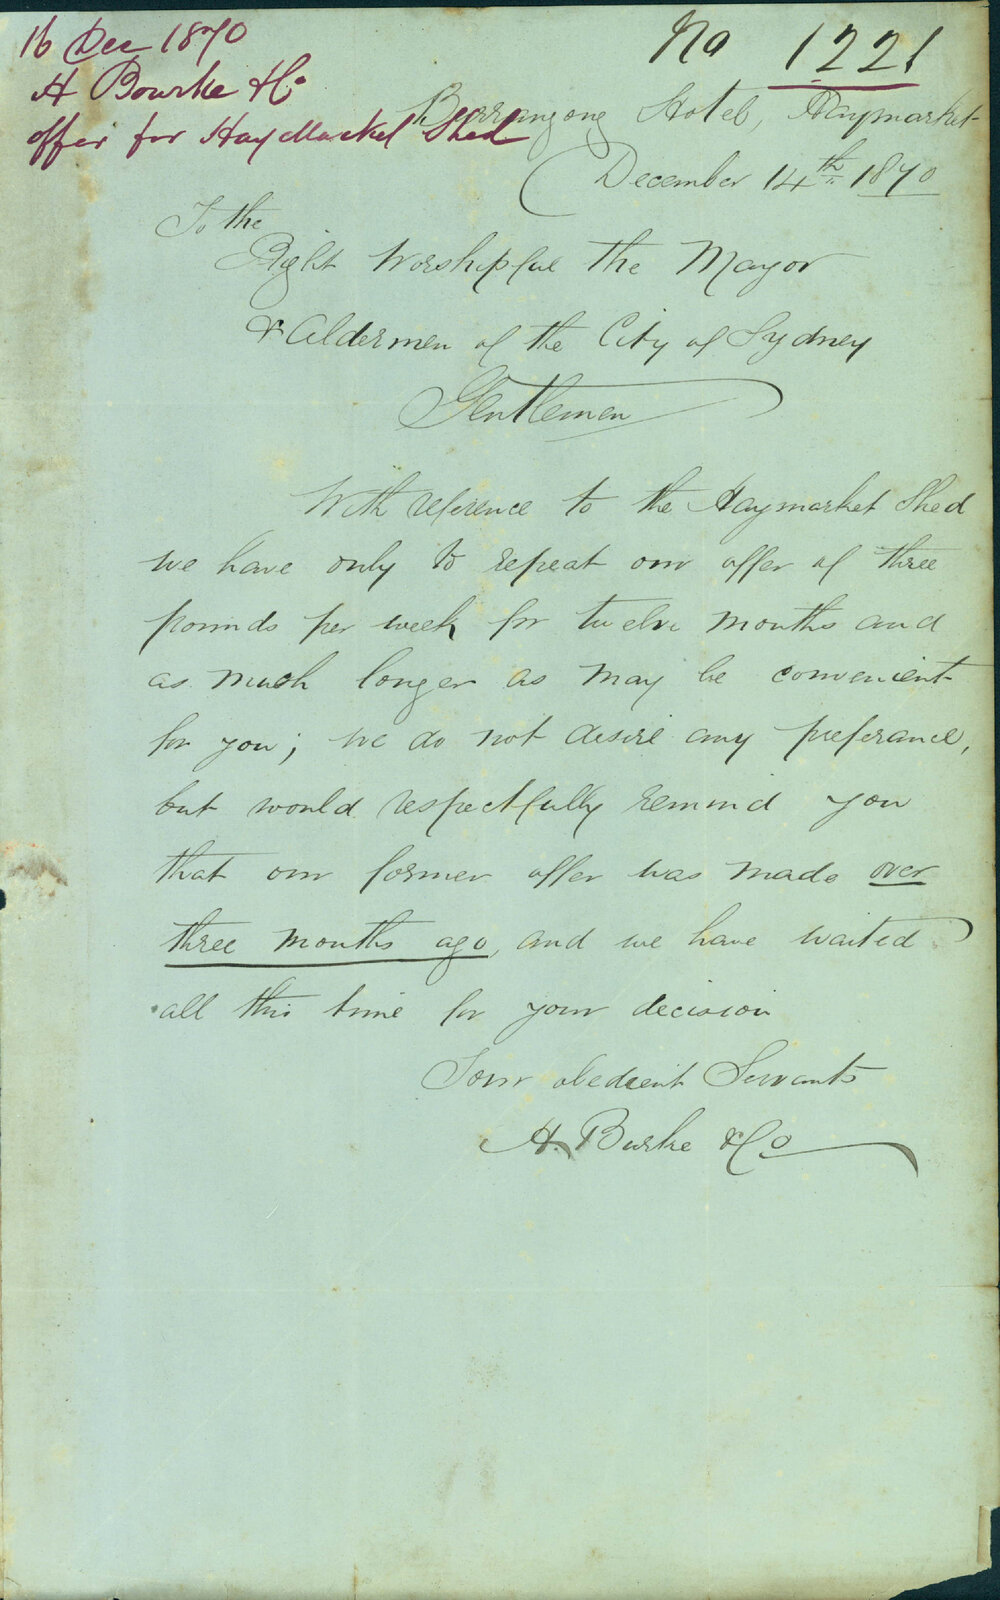 16 Dec 1870
H Bourke & Co
offer for HayMarket Shed
No 1221
Burrangong Hotel, Haymarket
December 14th 1870
To the
Right Worshipful the Mayor
& Aldermen of the City of Sydney
Gentlemen
With reference to the Haymarket Shed
we have only to repeat our offer of three
pounds per week for twelve months and
as much longer as may be convenient
for you; we do not desire any preferance,
but would respectfully remind you
that our former offer was made over
three months ago, and we have waited
all this time for your decision
Your obedient Servants
H. Burke & Co